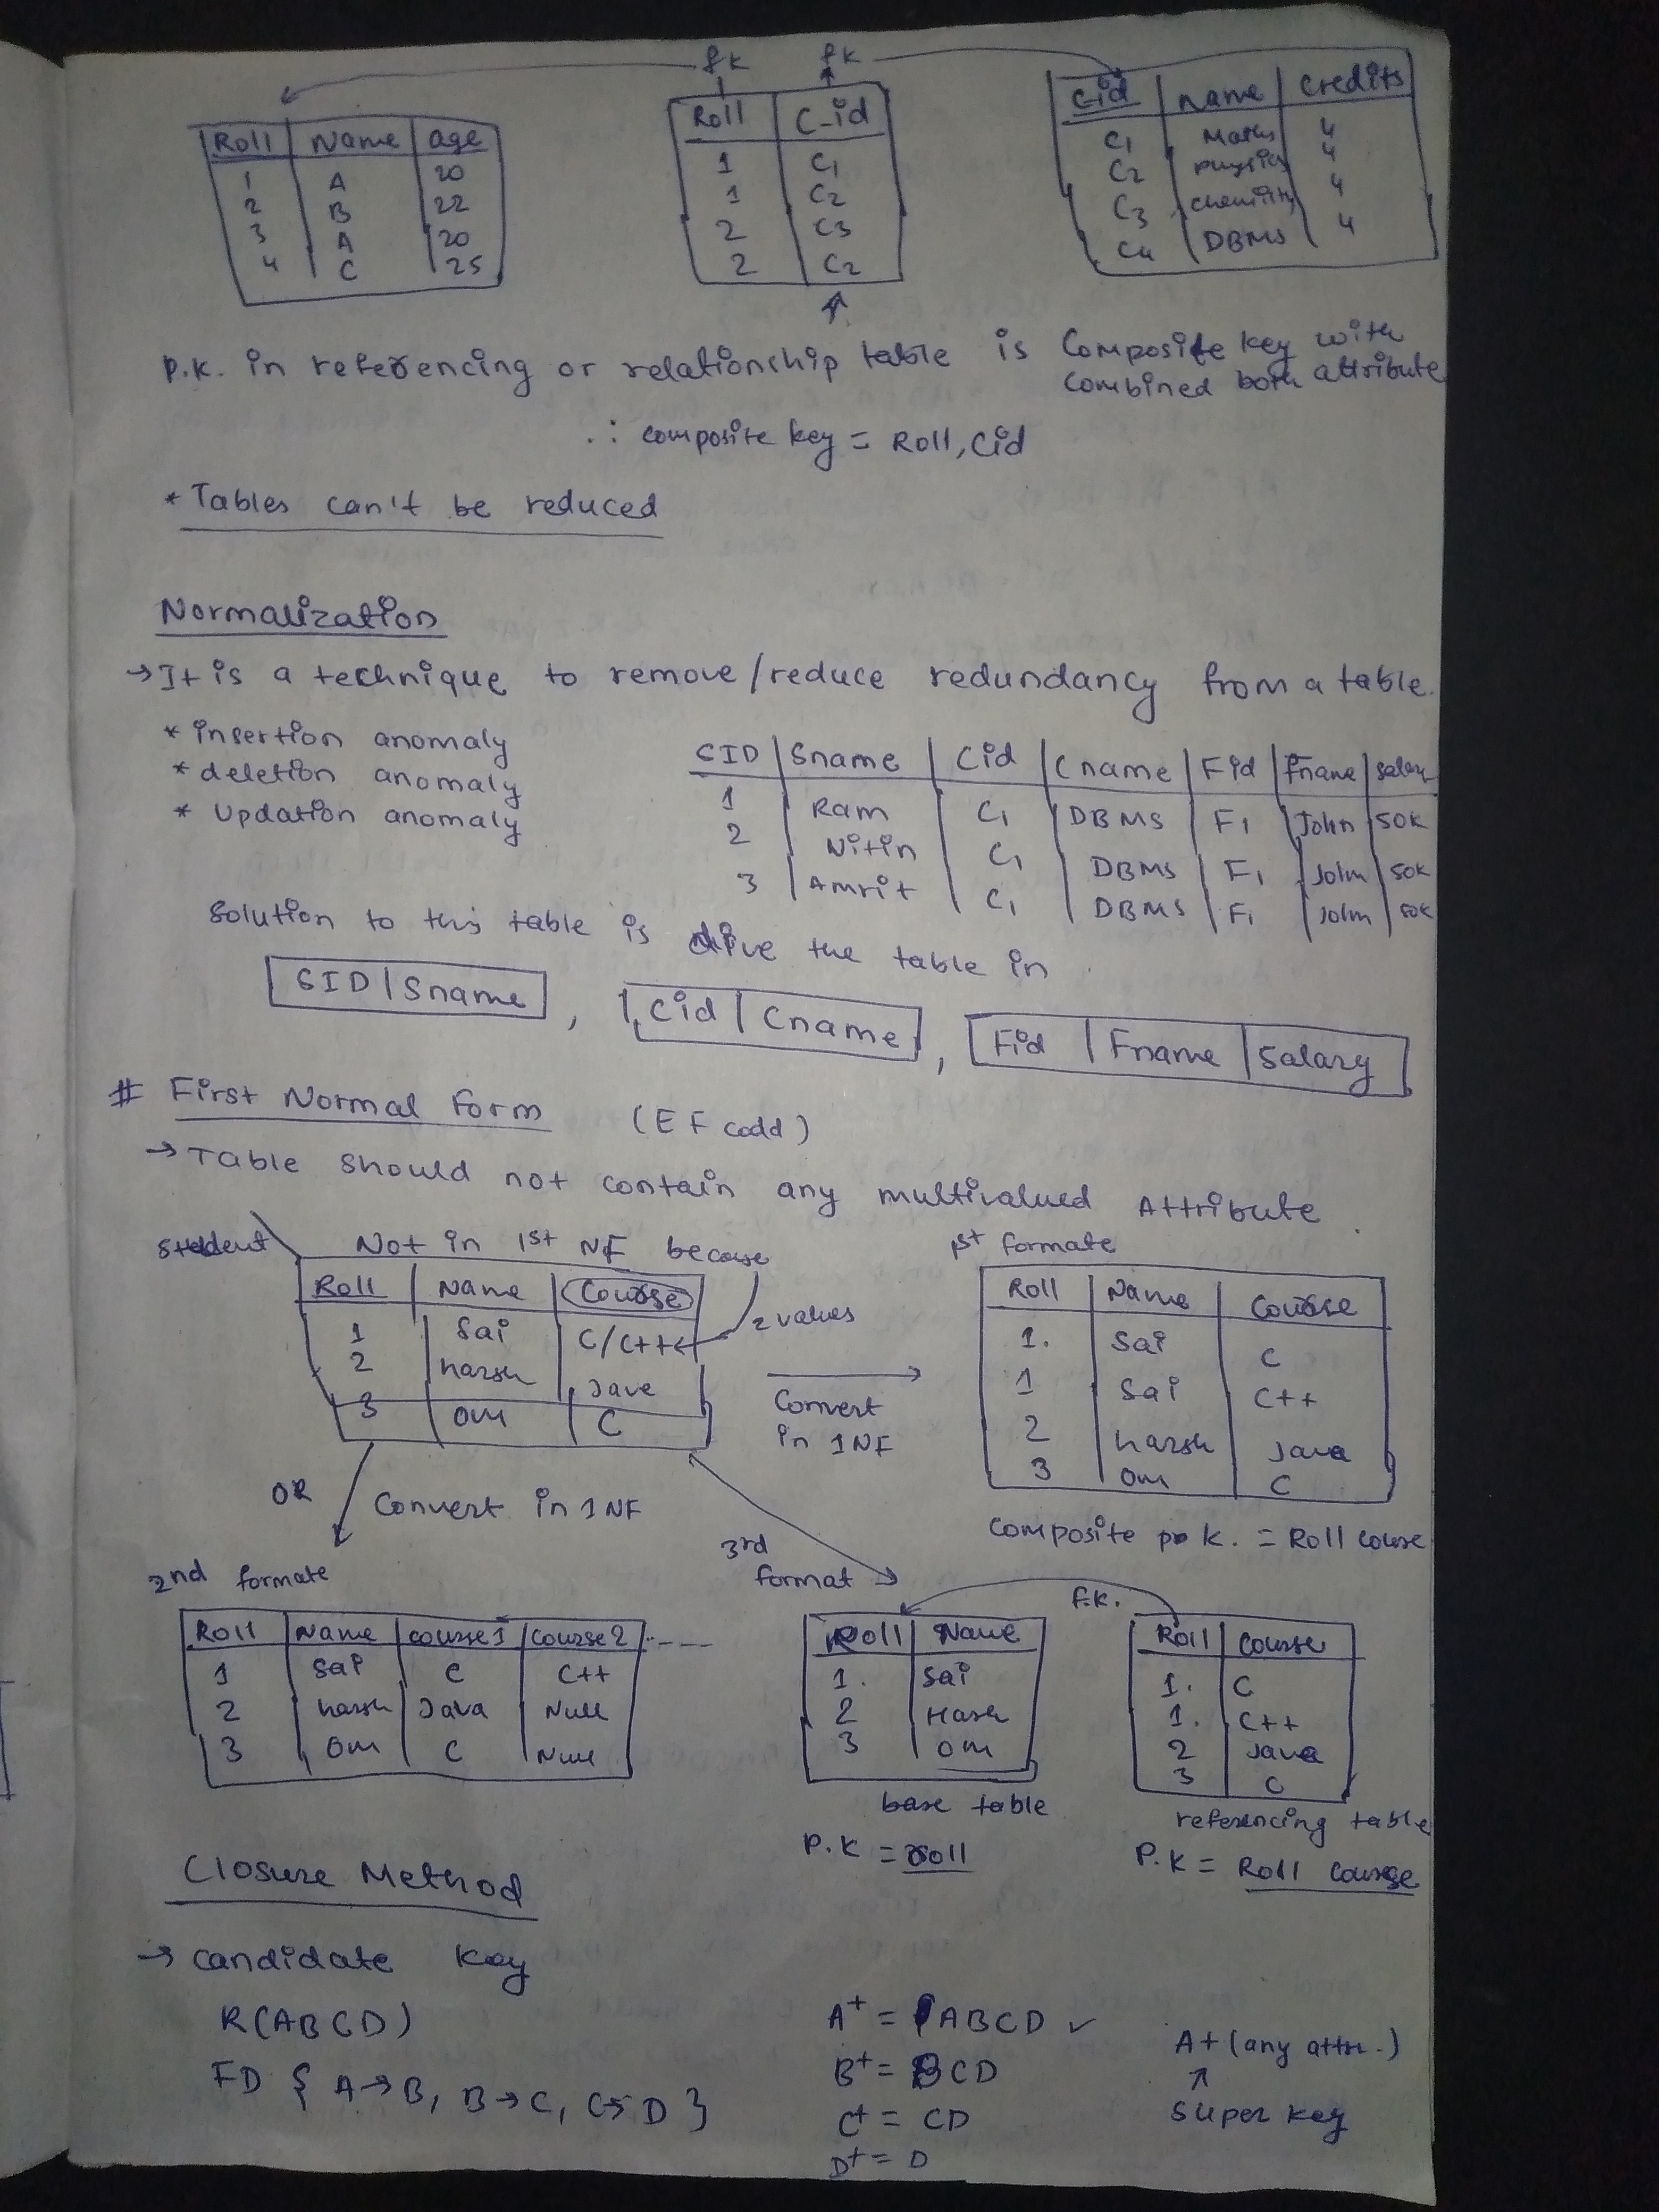 fk fk
Roll | Name | age
1 A 20
2 B 22
3 A 20
4 C 25
Roll | C_id
1 C1
1 C2
2 C3
2 C2
C-id | Name | Credits
C1 Maths 4
C2 physics 4
C3 4
C4 DBMS 4
P.K. in referencing or relationship table is Composite key with
combined both attribute
∴ composite key = Roll, Cid
* Tables can't be reduced
Normalization
→ It is a technique to remove/reduce redundancy from a table.
* insertion anomaly
* deletion anomaly
* Updation anomaly
SID | Sname | Cid | Cname | Fid | Fname | salary
1 Ram C1 DBMS F1 John 50K
2 Nitin C1 DBMS F1 John 50K
3 Amrit C1 DBMS F1 John 50K
Solution to this table is dive the table in
SID | Sname , Cid | Cname , Fid | Fname | Salary
# First Normal Form (E F codd)
→ Table should not contain any multivalued Attribute.
Student Not in 1st NF because
Roll | Name | Course
1 Sai C/C++ 2 values
2 harsh Jave
3 Om C
Convert
in 1NF
1st formate
Roll | Name | Course
1. Sai C
1 Sai C++
2 harsh Java
3 Om C
Composite p.k. = Roll course
OR Convert in 1NF
2nd formate
Roll | Name | course1 | Course2 ----
1 Sai C C++
2 harsh Java Null
3 Om C Null
3rd
format
f.k.
Roll | Name
1. Sai
2 Harsh
3 Om
base table
P.K = roll
Roll | Course
1. C
1. C++
2 Java
3 C
referencing table
P.K = Roll course
Closure Method
→ candidate key
R(ABCD)
FD { A→B, B→C, C→D }
A+ = ABCD ✓
B+ = BCD
C+ = CD
D+ = D
A+ (any attr.)
↑
Super key